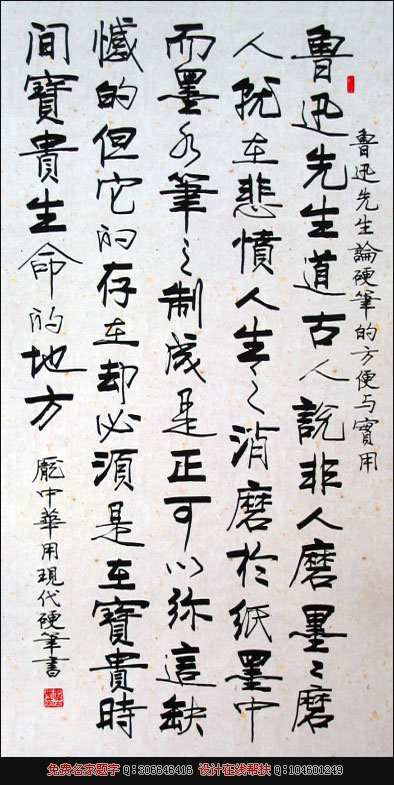 魯迅先生論硬筆的方便与實用
魯迅先生道古人說非人磨墨〻磨
人就在悲憤人生之消磨於紙墨中
而墨水筆之制成是正可以弥這缺
憾的但它的存在却必須是在寶貴時
间寶貴生命的地方
龐中華用現代硬筆書
免费名家题字 Q:306646416 设计在线帮扶 Q:104601249